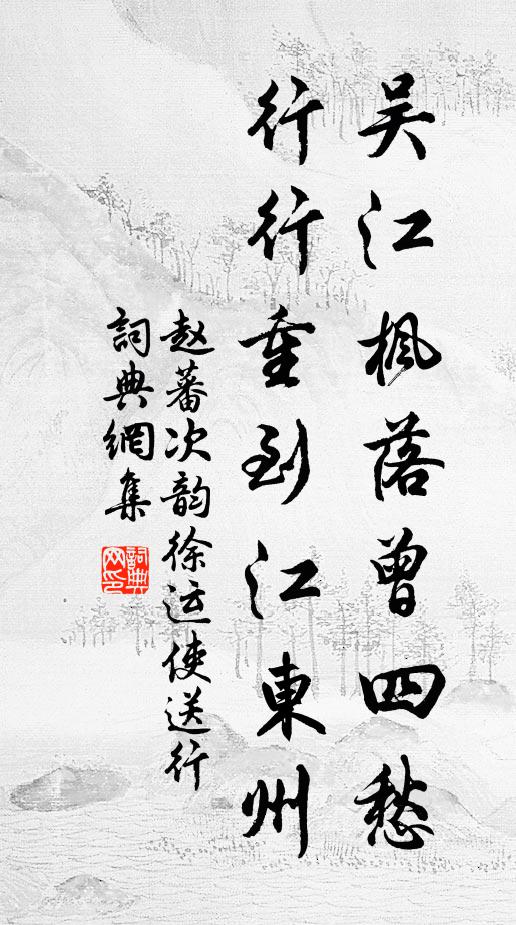 吴江枫落曾四愁
行行重到江東州
赵蕃次韵徐运使送行
詞典網集
詞典
网印